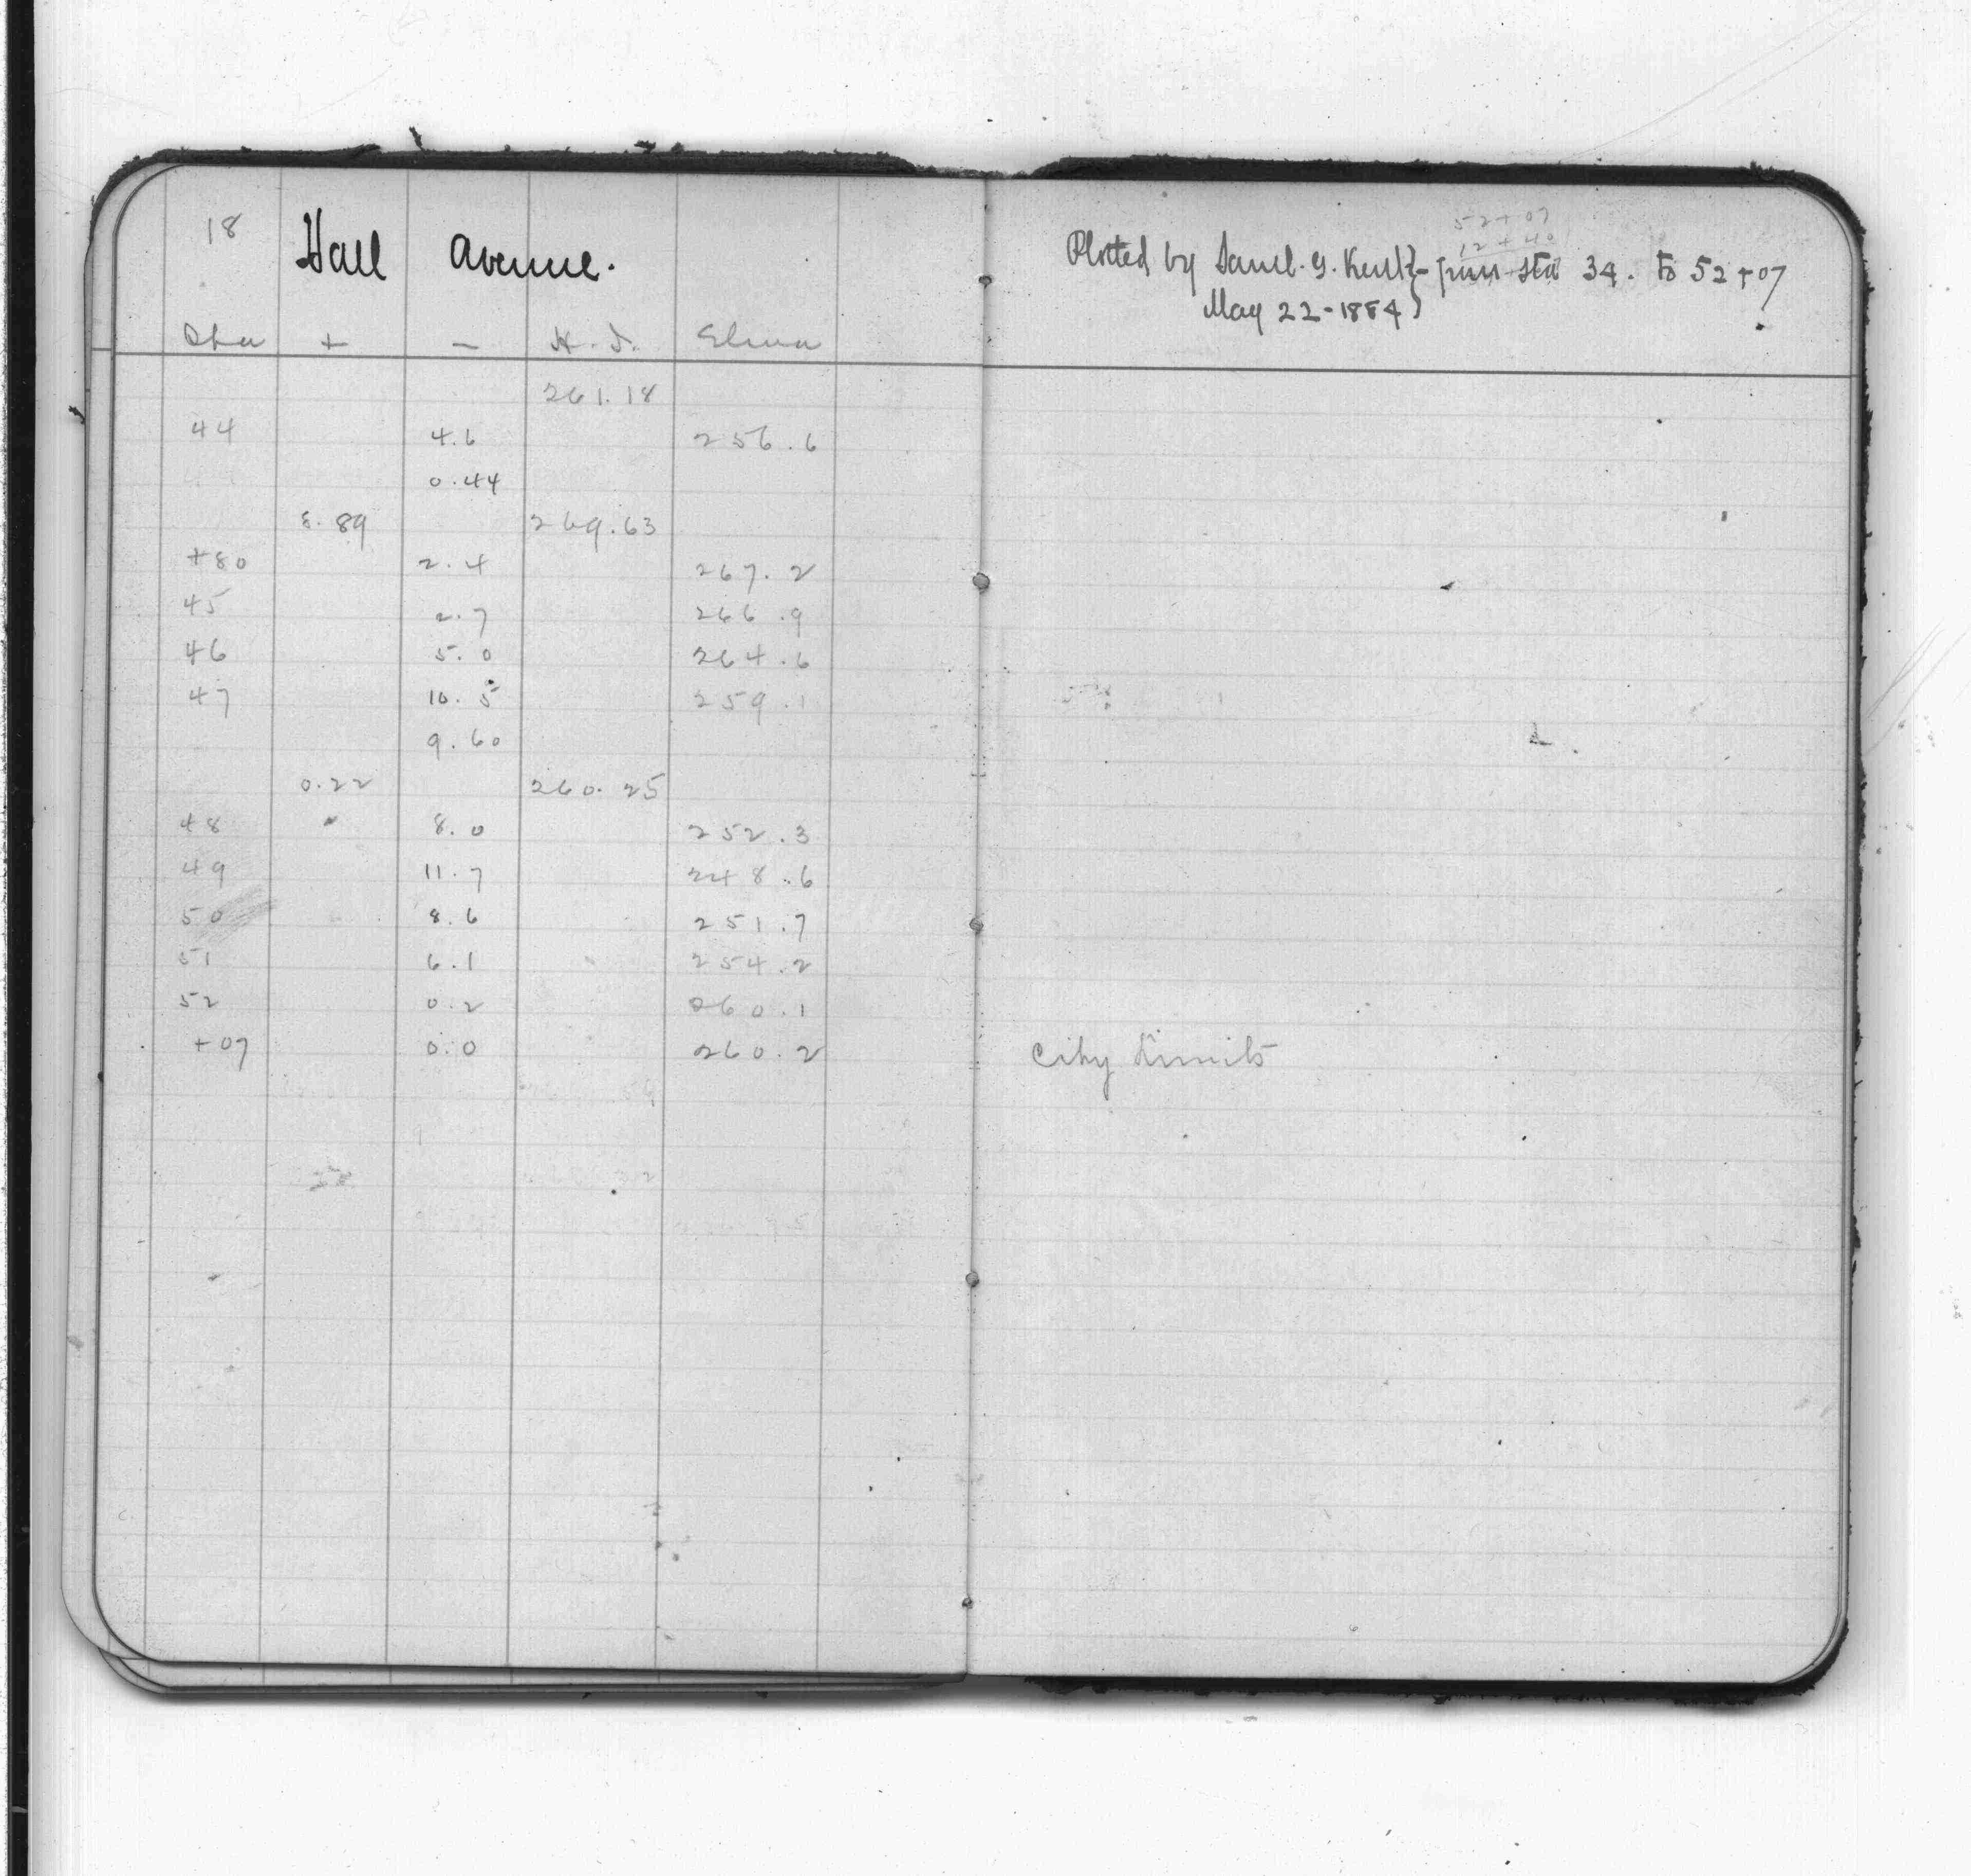 18 Hall Avenue.
Sta + - H.I. Eleva
261.18
44 4.6 256.6
0.44
8.89 269.63
+80 2.4 267.2
45 2.7 266.9
46 5.0 264.6
47 10.5 259.1
9.60
0.22 260.25
48 8.0 252.3
49 11.7 248.6
50 8.6 251.7
51 6.1 254.2
52 0.2 260.1
+07 0.0 260.2
52+07
12+40
Plotted by Saml. G. from Sta 34. to 52+07
May 22-1884
City Limits